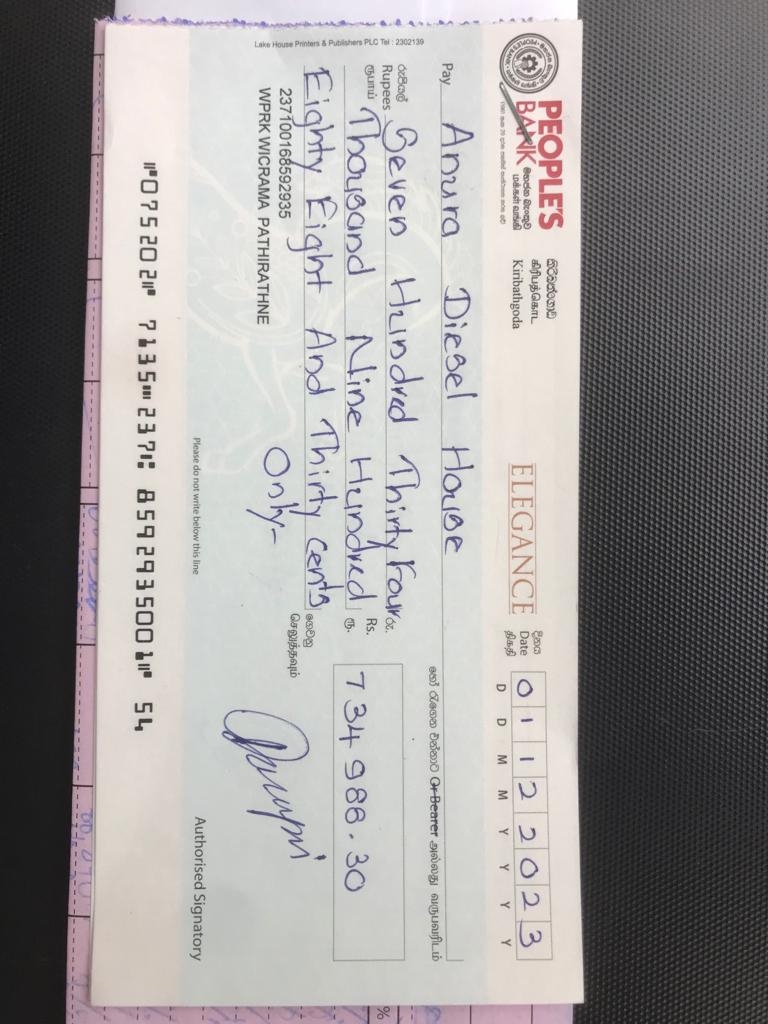 PEOPLE'S
BANK
මහජන බැංකුව
மக்கள் வங்கி
කිරිබත්ගොඩ
கிரிபத்கொட
Kiribathgoda
ELEGANCE
දිනය
Date
திகதி
01122023
D D M M Y Y Y Y
Pay Anura Diesel House
හෝ රැගෙන එන්නාට Or Bearer அல்லது வருபவரிடம்
රුපියල්
Rupees
ரூபாய்
Seven Hundred Thirty Four
Thousand Nine Hundred
Eighty Eight And Thirty Cents
Only-
රු.
Rs.
ரூ.
734 988.30
ගෙවනු
செலுத்தவும்
237100168592935
WPRK WICRAMA PATHIRATHNE
Please do not write below this line
Authorised Signatory
Lake House Printers & Publishers PLC Tel : 2302139
⑈075202⑈ 7135⑉237⑆ 8592935001⑈ 54
%